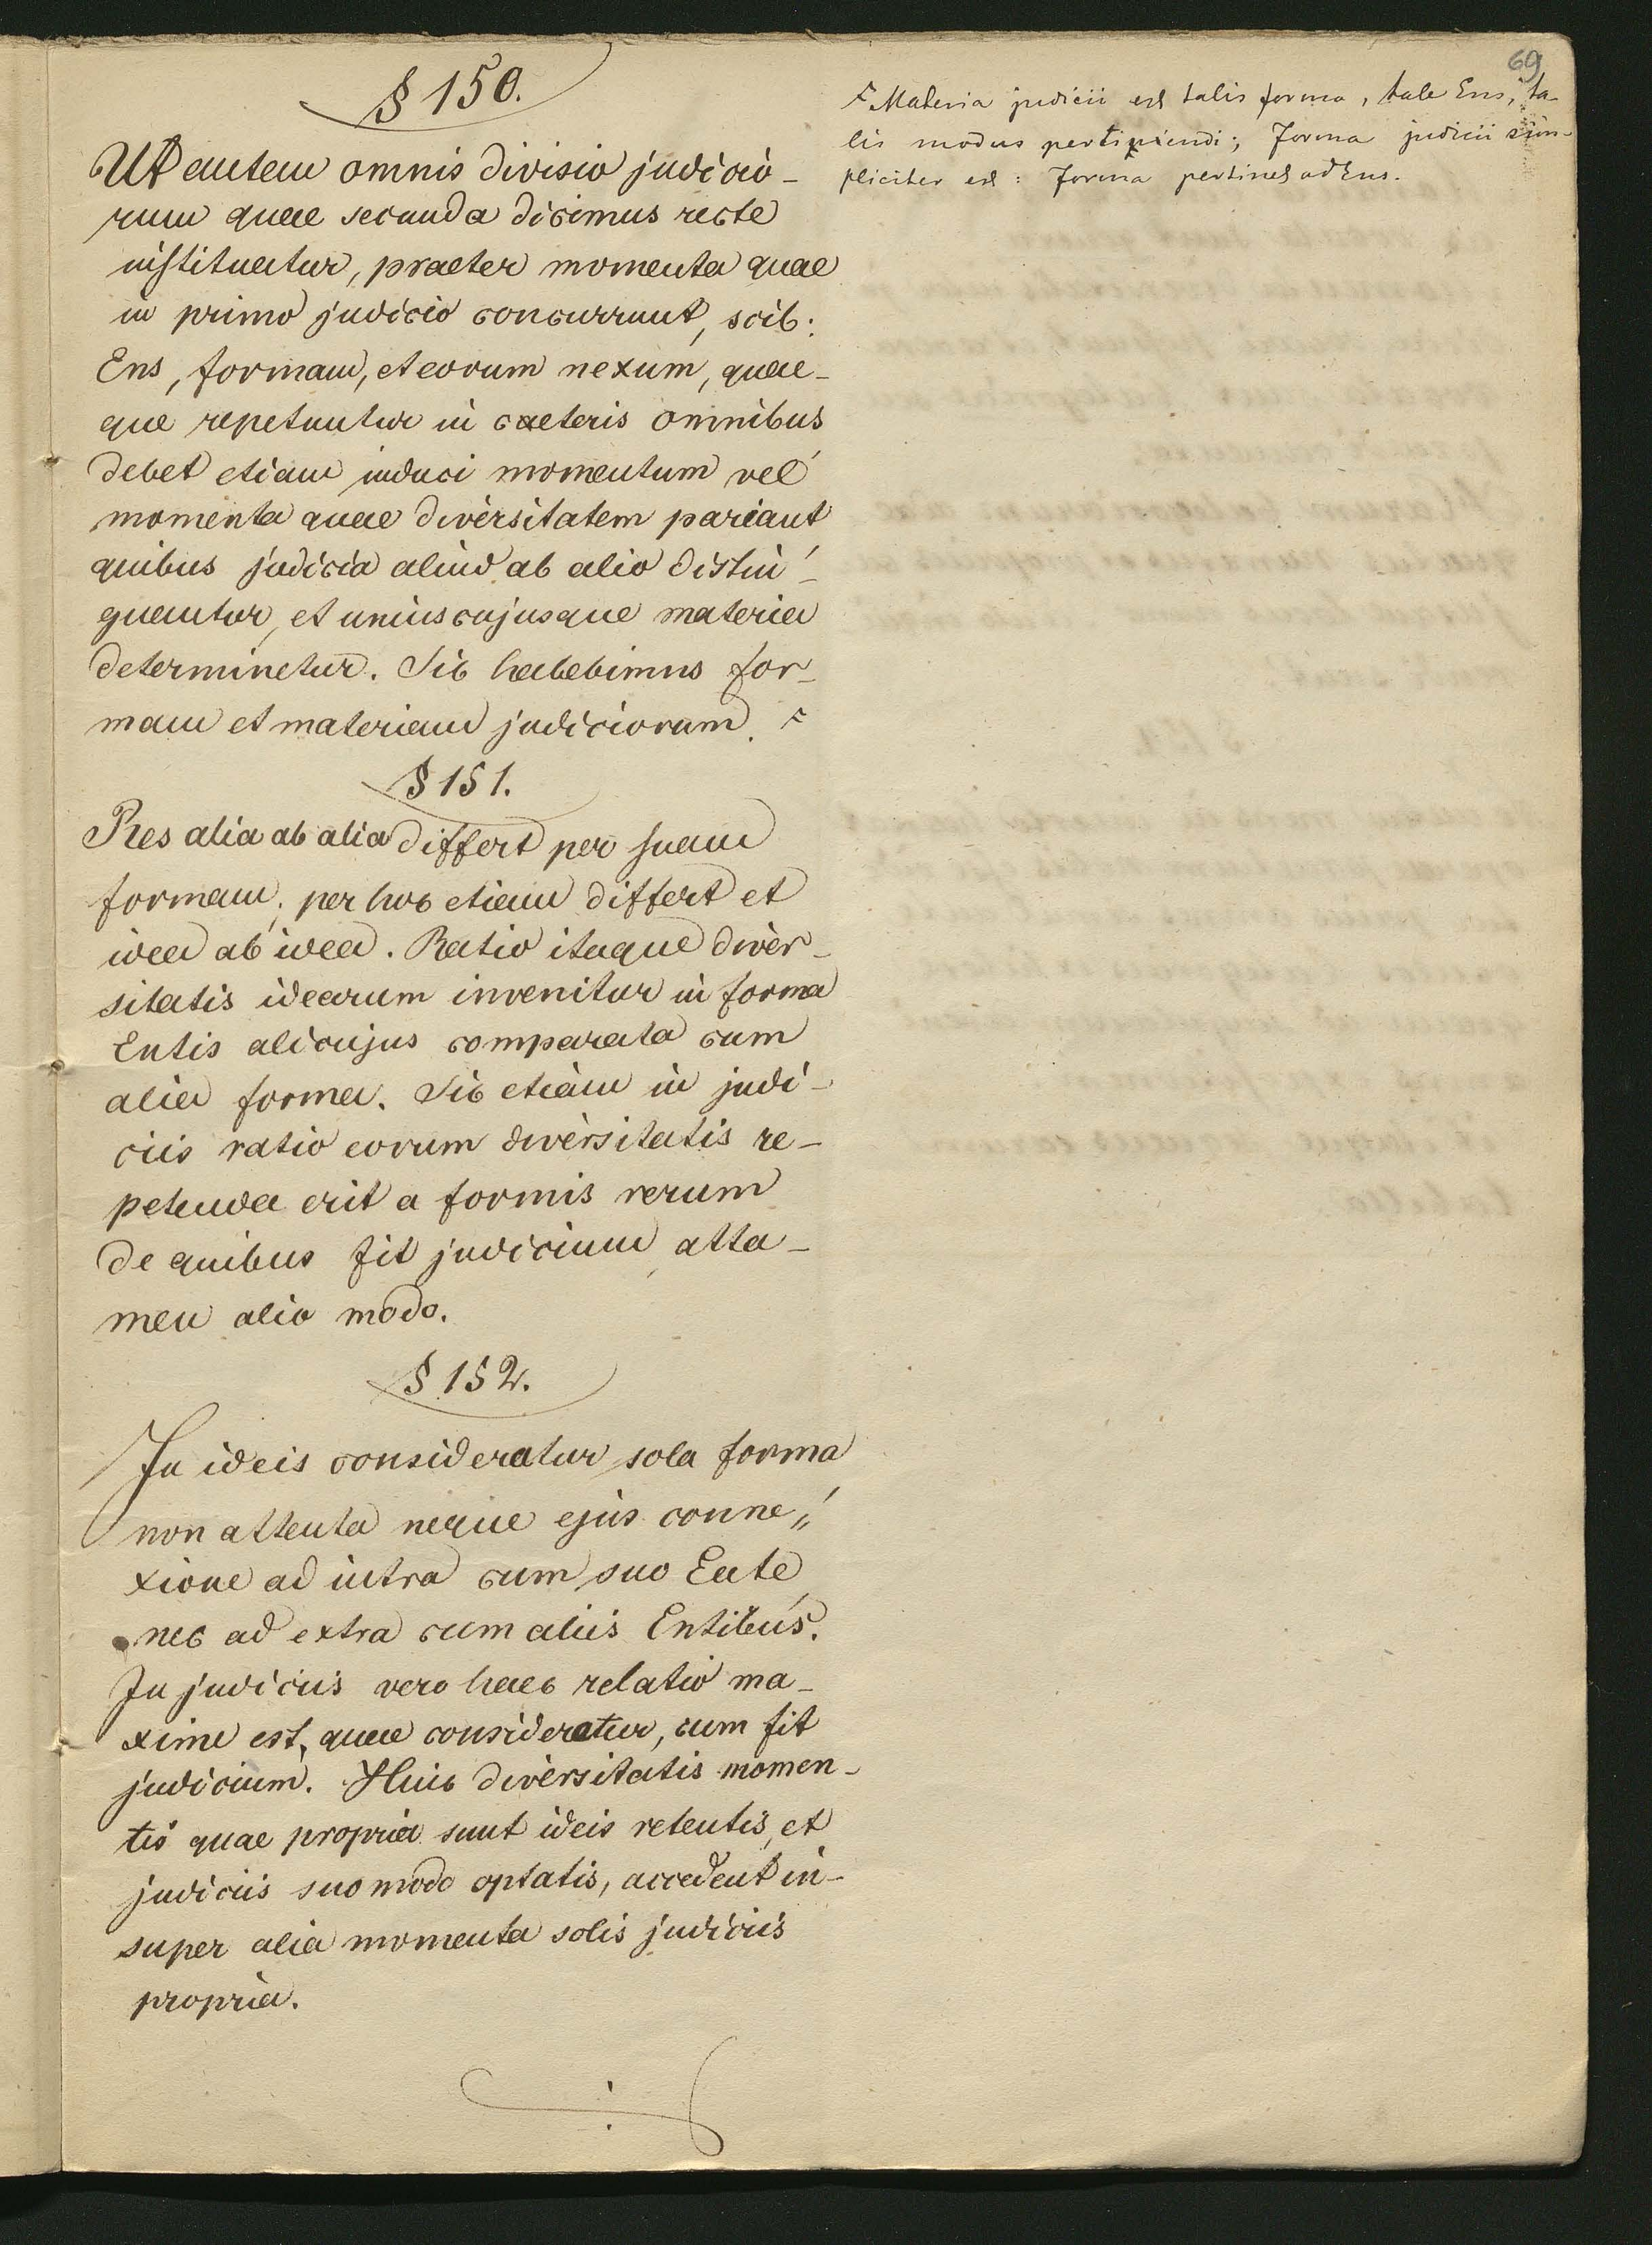 69
§ 150.
Ut autem omnis divisio judicio-
rum quae secunda dicimus recte
instituatur, praeter momenta quae
in primo judicio concurrunt, scil:
Ens, formam, et eorum nexum, quae-
que repetuntur in caeteris omnibus
debet etiam induci momentum vel
momenta quae diversitatem pariant
quibus judicia aliud ab alio distin-
guantur, et uniuscujusque materia
determinetur. Sic habebimus for-
mam et materiam judiciorum.
§ 151.
Res alia ab alia differt per suam
formam; per hoc etiam differt et
idea ab idea. Ratio itaque diver-
sitatis idearum invenitur in forma
Entis alicujus comparata cum
alia forma. Sic etiam in judi-
ciis ratio eorum diversitatis re-
petenda erit a formis rerum
de quibus fit judicium, atta-
men alio modo.
§ 152.
In ideis consideratur sola forma
non attenta neque ejus conne„
xione ad intra cum suo Ente
nec ad extra cum aliis Entibus.
In judiciis vero haec relatio ma-
xime est, quae consideratur, cum fit
judicium. Huic diversitatis momen-
tis quae propria sunt ideis retentis, et
judiciis suo modo optatis, accedent in-
super alia momenta solis judiciis
propria.
Materia judicii est talis forma, tale Ens, ta-
lis modus pertinendi; Forma judicii sim-
pliciter est: forma pertinet ad Ens.